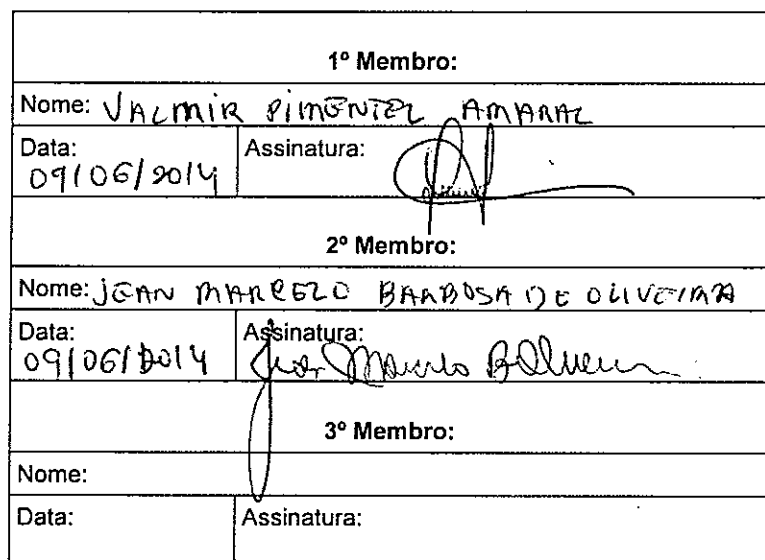 1º Membro:
Nome: VALMIR PIMENTEL AMARAL
Data: Assinatura:
09/06/2014
2º Membro:
Nome: JEAN MARCELO BARBOSA DE OLIVEIRA
Data: Assinatura:
09/06/2014 Jean Marcelo B Oliveira
3º Membro:
Nome:
Data: Assinatura: